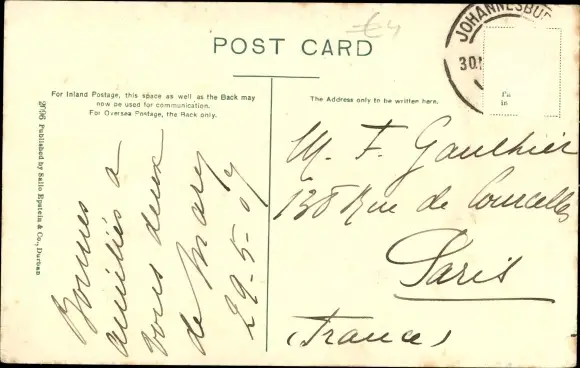 £4
POST CARD
JOHANNESBU
30
For Inland Postage, this space as well as the Back may
now be used for communication.
For Oversea Postage, the Back only.
The Address only to be written here.
Published by Sallo Epstein & Co., Durban
Bonnes
amitiés à
vous deux
de Mary
29-5-07
M. F. Gauthier
138 Rue de Courcelles
Paris
(France)